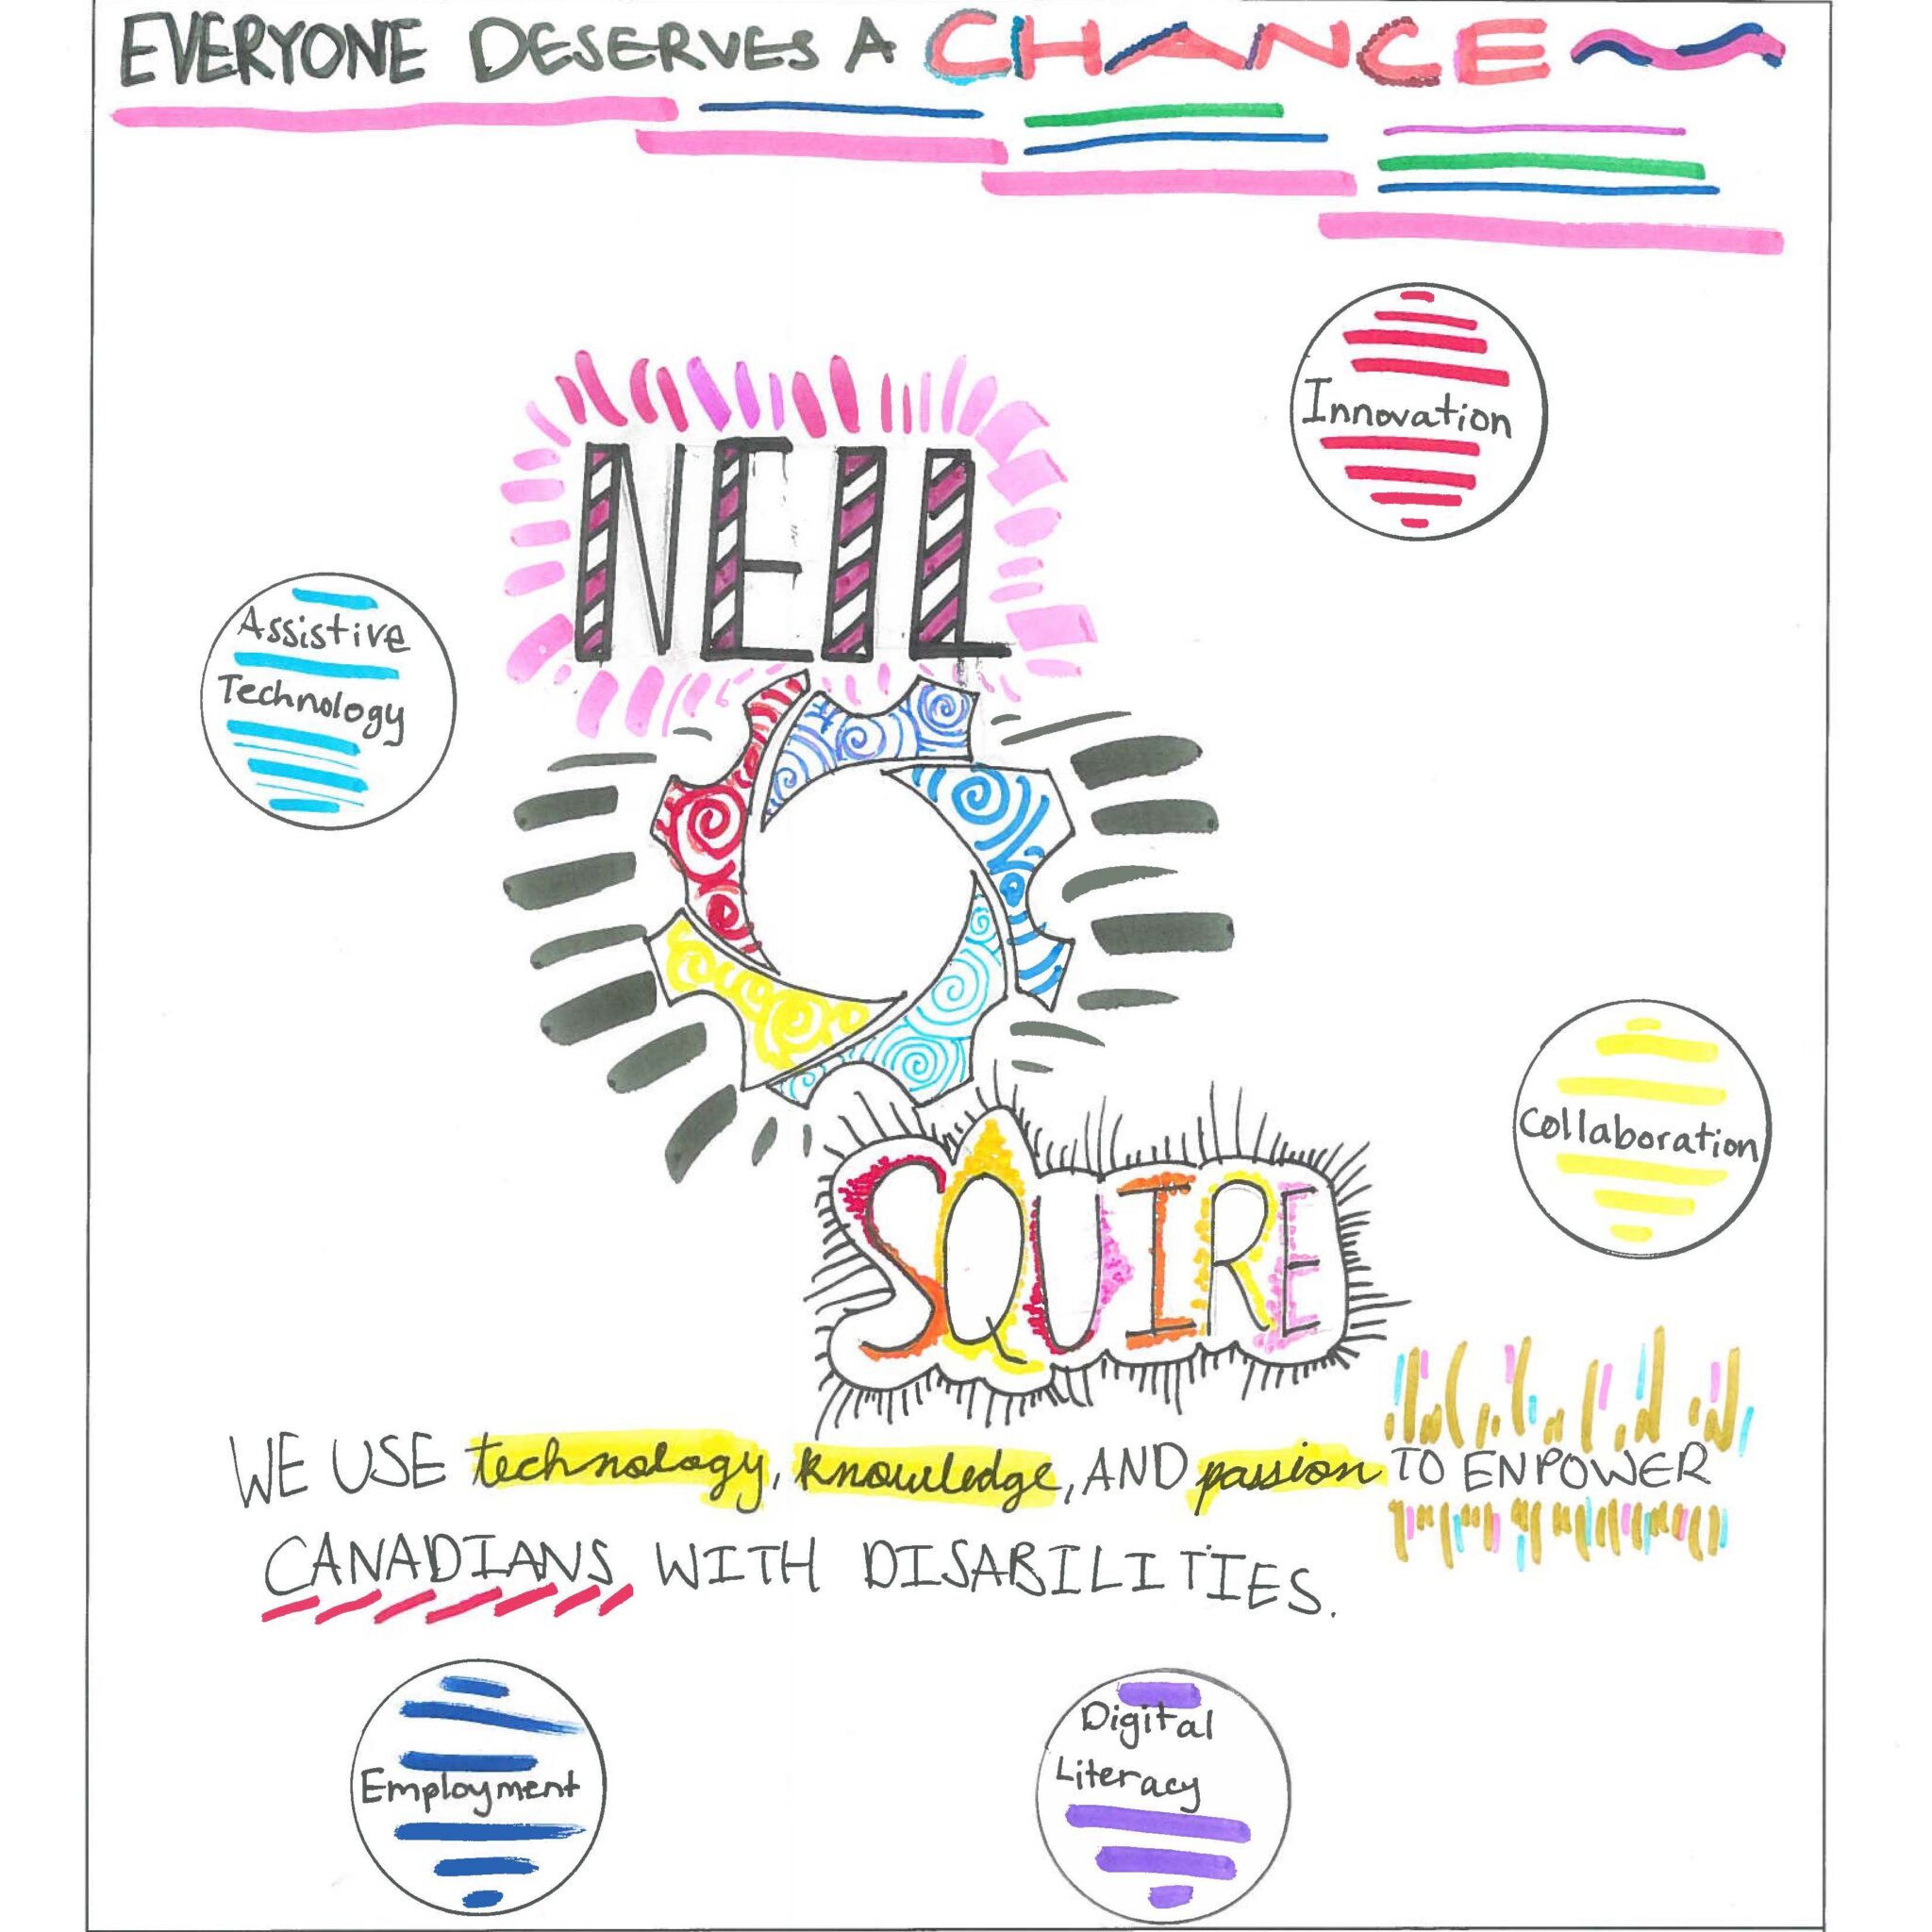 EVERYONE DESERVES A CHANCE
Innovation
NEIL
Assistive
Technology
Collaboration
SQUIRE
WE USE technology, knowledge, AND passion TO ENPOWER
CANADIANS WITH DISABILITIES.
Employment
Digital
Literacy